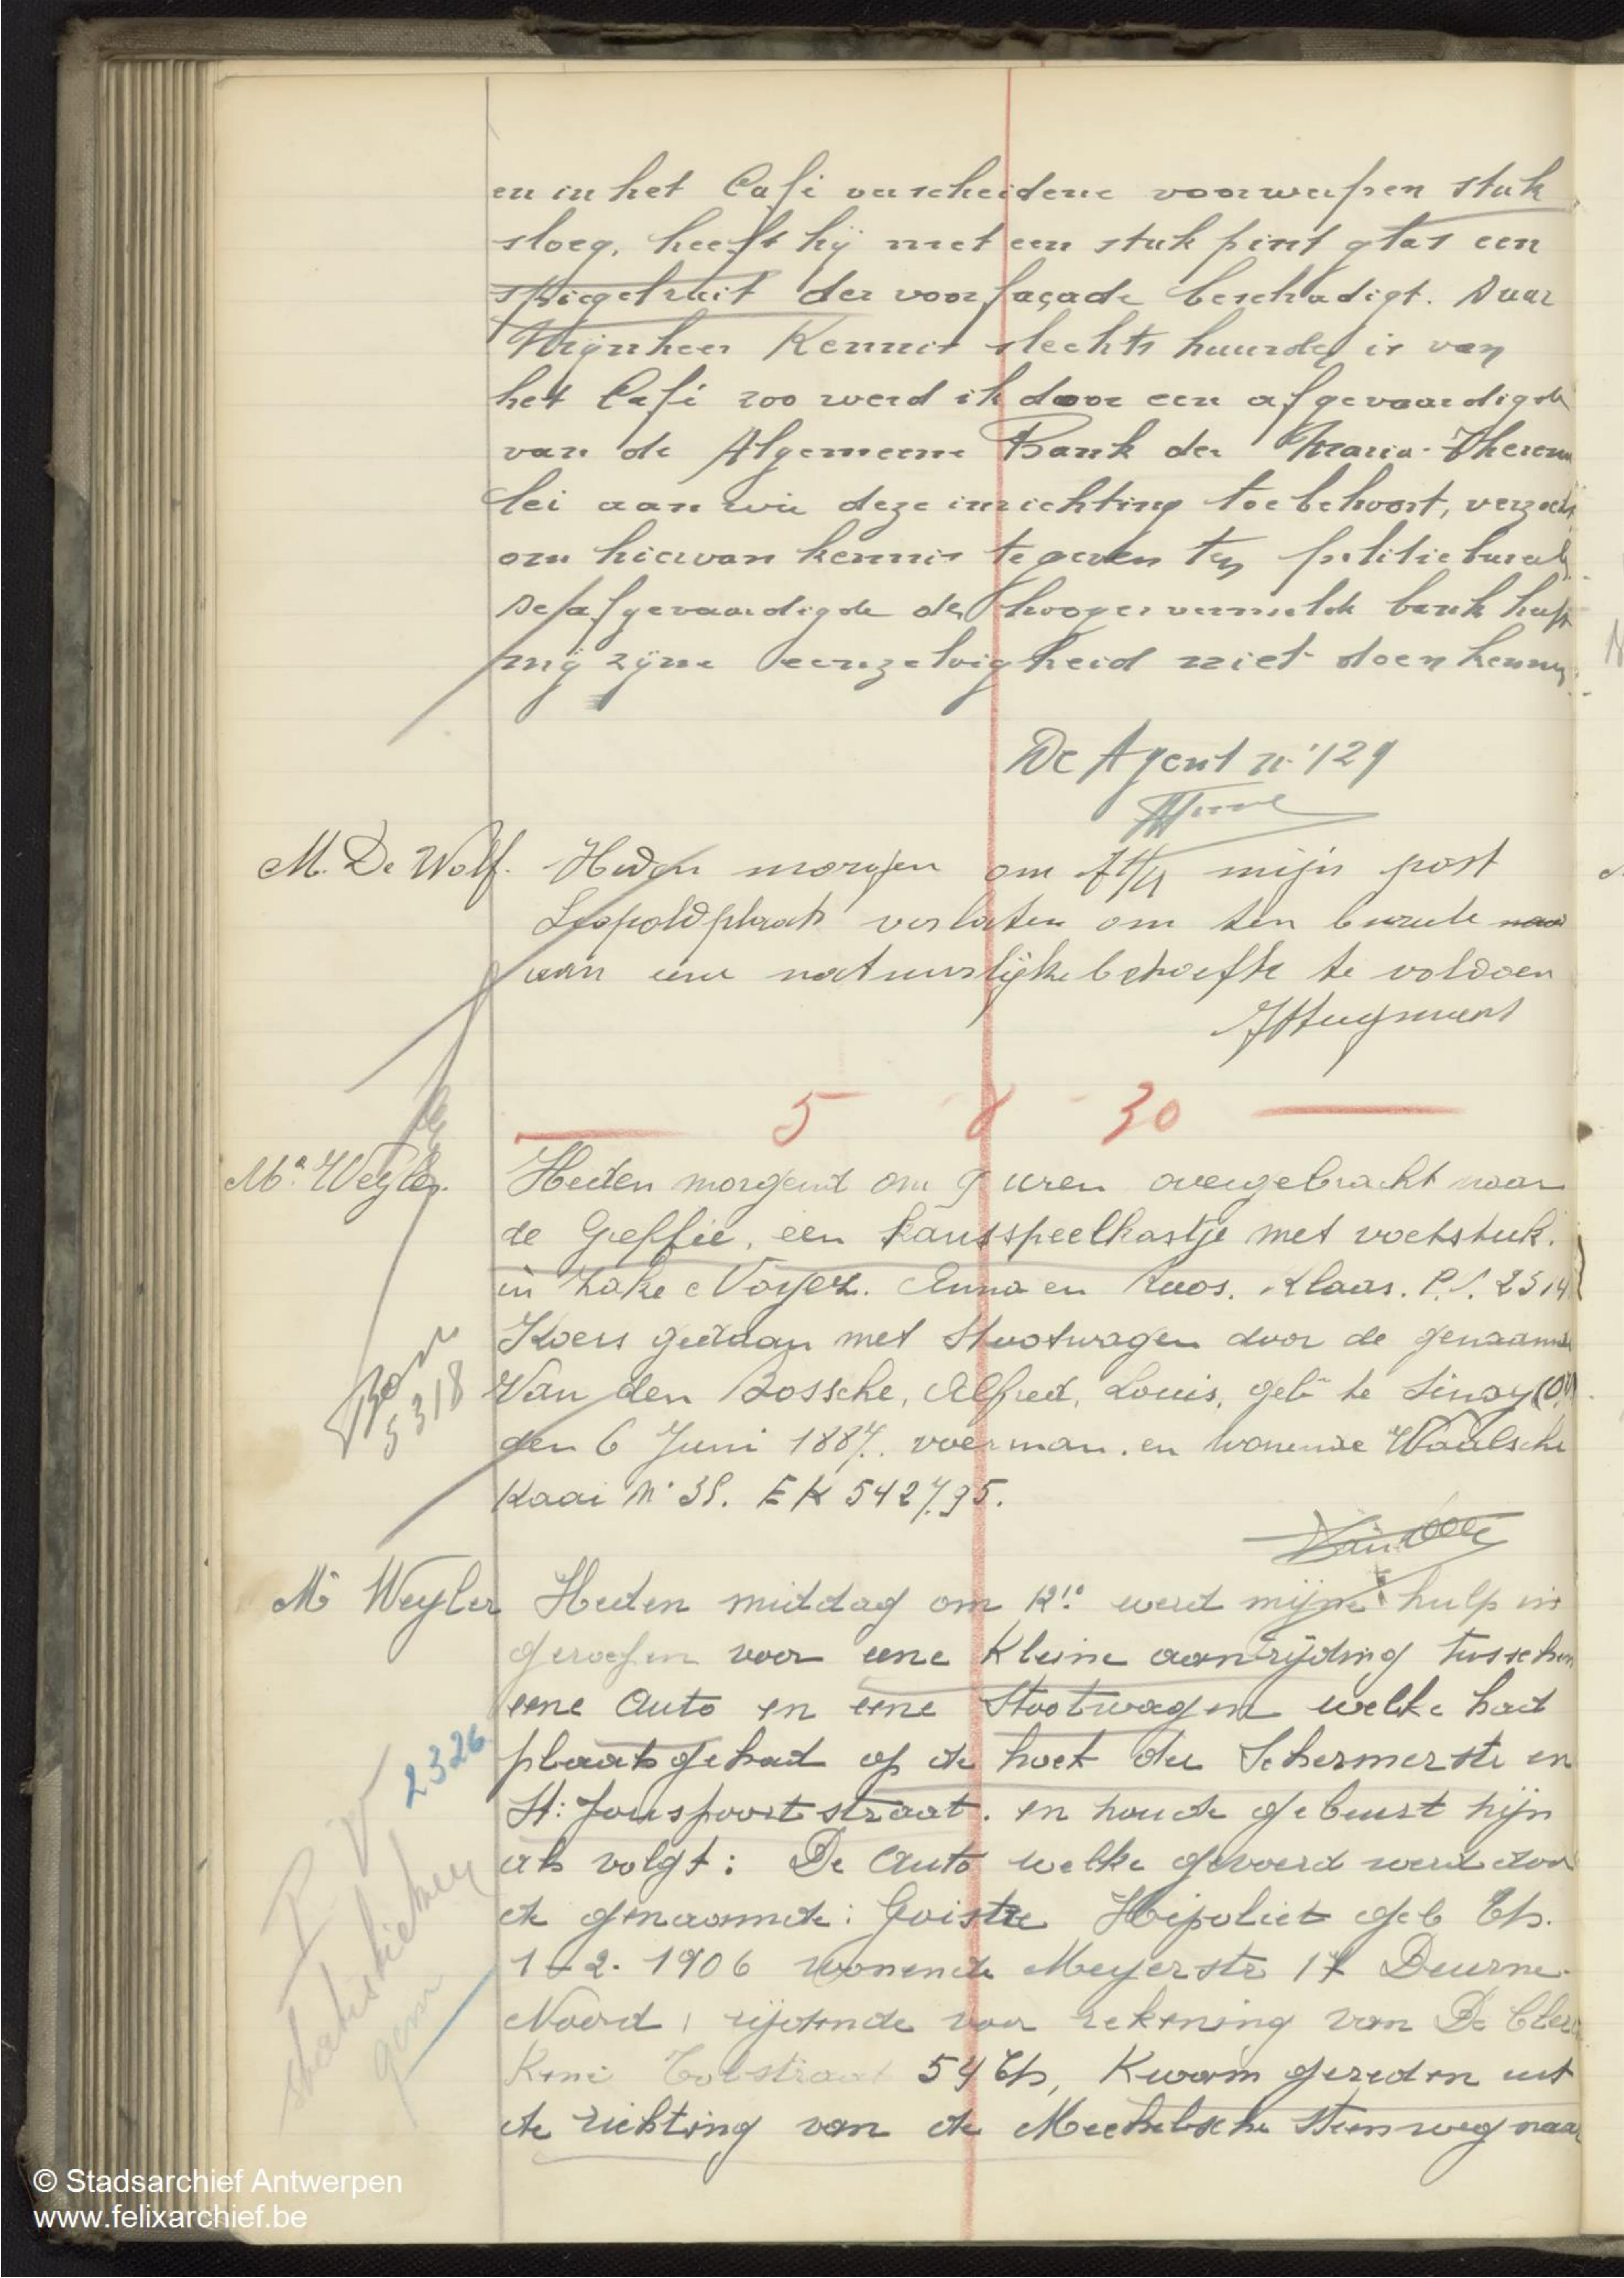 en in het Café verscheidene voorwerpen stuk
sloeg, heeft hij met een stuk pint glas een
spiegelruit der voorfaçade beschadigt. Daar
Mijnheer Kennis slechts huurder is van
het Café zoo werd ik door een afgevaardigde
van de Algemeene Bank der Maria-Theresia
lei aan wie deze inrichting toebehoort, verzocht
om hiervan kennis te geven ten politiebureele
De afgevaardigde der hooger vermelde bank heeft
mij zijne eenzelvigheid niet doen kennen
De Agent n° 129
M. De Wolf. Heden morgen om 7 1/4 mijn post
Leopoldplaats verlaten om ten bureele
aan eene natuurlijke behoefte te voldoen
JHuysmans
5 - 8 - 30
Mr Weyler. Heden morgend om 9 uren overgebracht naar
de Greffie, een kansspeelkastje met voetstuk.
in zake Noyez. Anna en Roos. Klaas. P.V. 2514
Koers gedaan met Stootwagen door de genaamde
Van den Bossche, Alfred, Louis, geb. te Sinay (OV)
den 6 Juni 1887. voerman. en wonende Waalsche
Kaai N° 38. EK 542795.
Bon
5318
Mr Weyler Heden middag om 12 10 werd mijne hulp in
geroepen voor eene kleine aanrijding tusschen
eene Auto en eene Stootwagen welke had
plaats gehad op de hoek der Schermerstr en
St: Jorispoortstraat. en houde gebeurt zijn
als volgt: De Auto welke gevoerd werd door
de genaamde: Goistre Hipoliet geb Ets.
1-2-1906 wonende Meyerstr 17 Deurne-
Noord, rijdende voor rekening van De Clerc
René 54 Ets, Kwam gereden uit
de richting van de Mechelsche Steenweg naar
2326
P V
statistieken
gem
© Stadsarchief Antwerpen
www.felixarchief.be